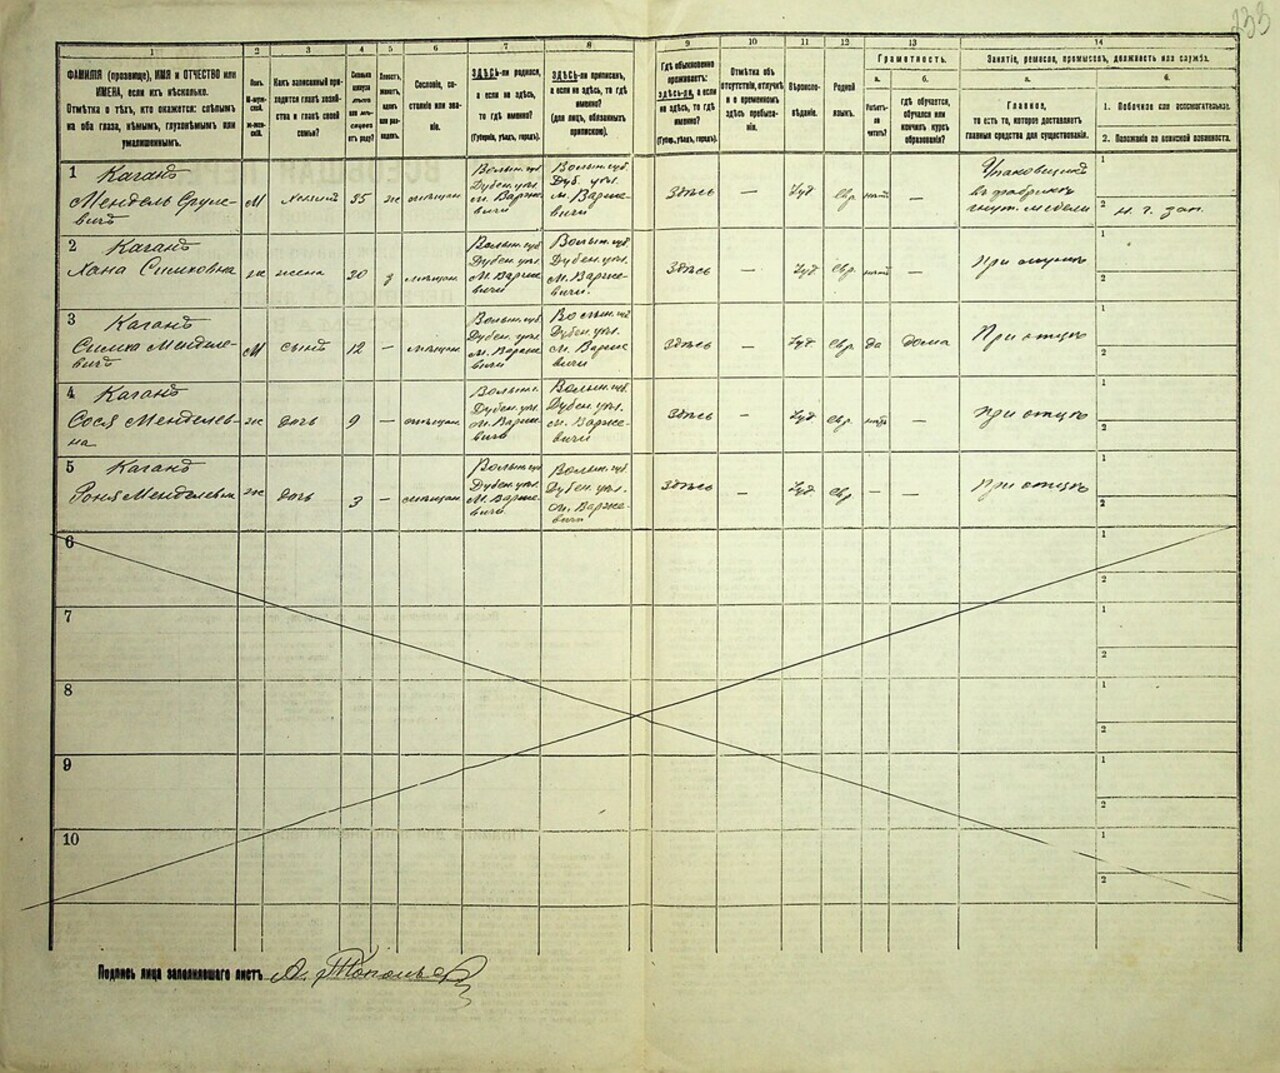 233
1 2 3 4 5 6 7 8 9 10 11 12 13 14
ФАМИЛІЯ (прозвище), ИМЯ и ОТЧЕСТВО или
ИМЕНА, если ихъ нѣсколько.
Отмѣтка о тѣхъ, кто окажется: слѣпымъ
на оба глаза, нѣмымъ, глухонѣмымъ или
умалишеннымъ.
Полъ.
М-мужской.
Ж-женскій.
Какъ записанный приходится главѣ хозяйства и главѣ своей
семьи?
Сколько
минуло
лѣтъ
или мѣсяцевъ
отъ роду?
Холостъ,
женатъ,
вдовъ
или разведенъ.
Сословіе, состояніе или званіе.
ЗДѢСЬ-ли родился,
а если не здѣсь,
то гдѣ именно?
(Губернія, уѣздъ, городъ).
ЗДѢСЬ-ли приписанъ,
а если не здѣсь, то гдѣ
именно?
(для лицъ, обязанныхъ
припиской).
Гдѣ обыкновенно
проживаетъ:
здѣсь-ли, а если
не здѣсь, то гдѣ
именно?
(Губерн., уѣздъ, городъ).
Отмѣтка объ
отсутствіи, отлучкѣ
и о временномъ
здѣсь пребываніи.
Вѣроисповѣданіе.
Родной
языкъ.
Грамотность.
а.
Умѣетъ-ли
читать?
б.
гдѣ обучается,
обучался или
кончилъ курсъ
образованія?
Занятіе, ремесло, промыселъ, должность или служба.
а.
Главное,
то есть то, которое доставляетъ
главныя средства для существованія.
б.
1. Побочное или вспомогательное.
2. Положеніе по воинской повинности.
1 Каганъ
Мендель Срулевичъ
М
хозяинъ
35
ж
мѣщан.
Волын. губ.
Дубен. уѣз.
м. Варковичи
Волын. губ.
Дуб. уѣз.
м. Варковичи
Здѣсь
—
Іуд.
Евр.
нѣтъ
—
Упаковщикъ
въ фабрикѣ
гнут. мебели
1
2 н. г. зап.
2 Каганъ
Хана Симховна
ж
жена
30
з
мѣщан.
Волын. губ.
Дубен. уѣз.
М. Варковичи
Волын. губ.
Дубен. уѣз.
М. Варковичи.
Здѣсь
—
Іуд.
Евр.
нѣтъ
—
При мужѣ
1
2
3 Каганъ
Симха Менделевичъ
М
сынъ
12
—
мѣщан.
Волын. губ.
Дубен. уѣз.
м. Варковичи
Волын. губ.
Дубен. уѣз.
М. Варковичи
Здѣсь
—
Іуд.
Евр.
да
дома
При отцѣ
1
2
4 Каганъ
Сося Менделевна
ж
дочь
9
—
мѣщан.
Волын. г.
Дубен. уѣз.
М. Варковичи
Волын. губ.
Дубен. уѣз.
м. Варковичи
Здѣсь
—
Іуд.
Евр.
нѣтъ
—
При отцѣ
1
2
5 Каганъ
Роня Менделевна
ж
дочь
3
—
мѣщан.
Волын. губ.
Дубен. уѣз.
М. Варковичи
Волын. губ.
Дубен. уѣз.
м. Варковичи
Здѣсь
—
Іуд.
Евр.
—
—
При отцѣ
1
2
6
1
2
7
1
2
8
1
2
9
1
2
10
1
2
Подпись лица заполнившаго листъ